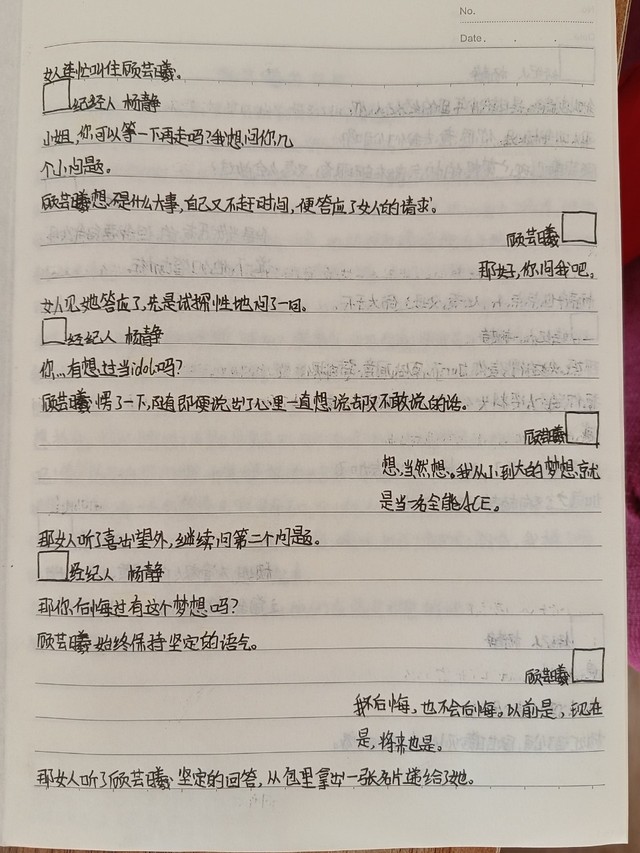 No.
Date . . .
女人连忙叫住顾芸曦。
经纪人 杨静
小姐,你可以等一下再走吗?我想问你几
个小问题。
顾芸曦想不是什么大事,自己又不赶时间,便答应了女人的请求。
顾芸曦
那好,你问我吧。
女人见她答应了,先是试探性地问了一问。
经纪人 杨静
你...有想过当idol吗?
顾芸曦愣了一下,随即便说出了心里一直想说却又不敢说的话。
顾芸曦
想,当然想。我从小到大的梦想就
是当一名全能ACE。
那女人听了喜出望外,继续问第二个问题。
经纪人 杨静
那你后悔过有这个梦想吗?
顾芸曦始终保持坚定的语气。
顾芸曦
我不后悔,也不会后悔。以前是,现在
是,将来也是。
那女人听了顾芸曦坚定的回答,从包里拿出一张名片递给了她。